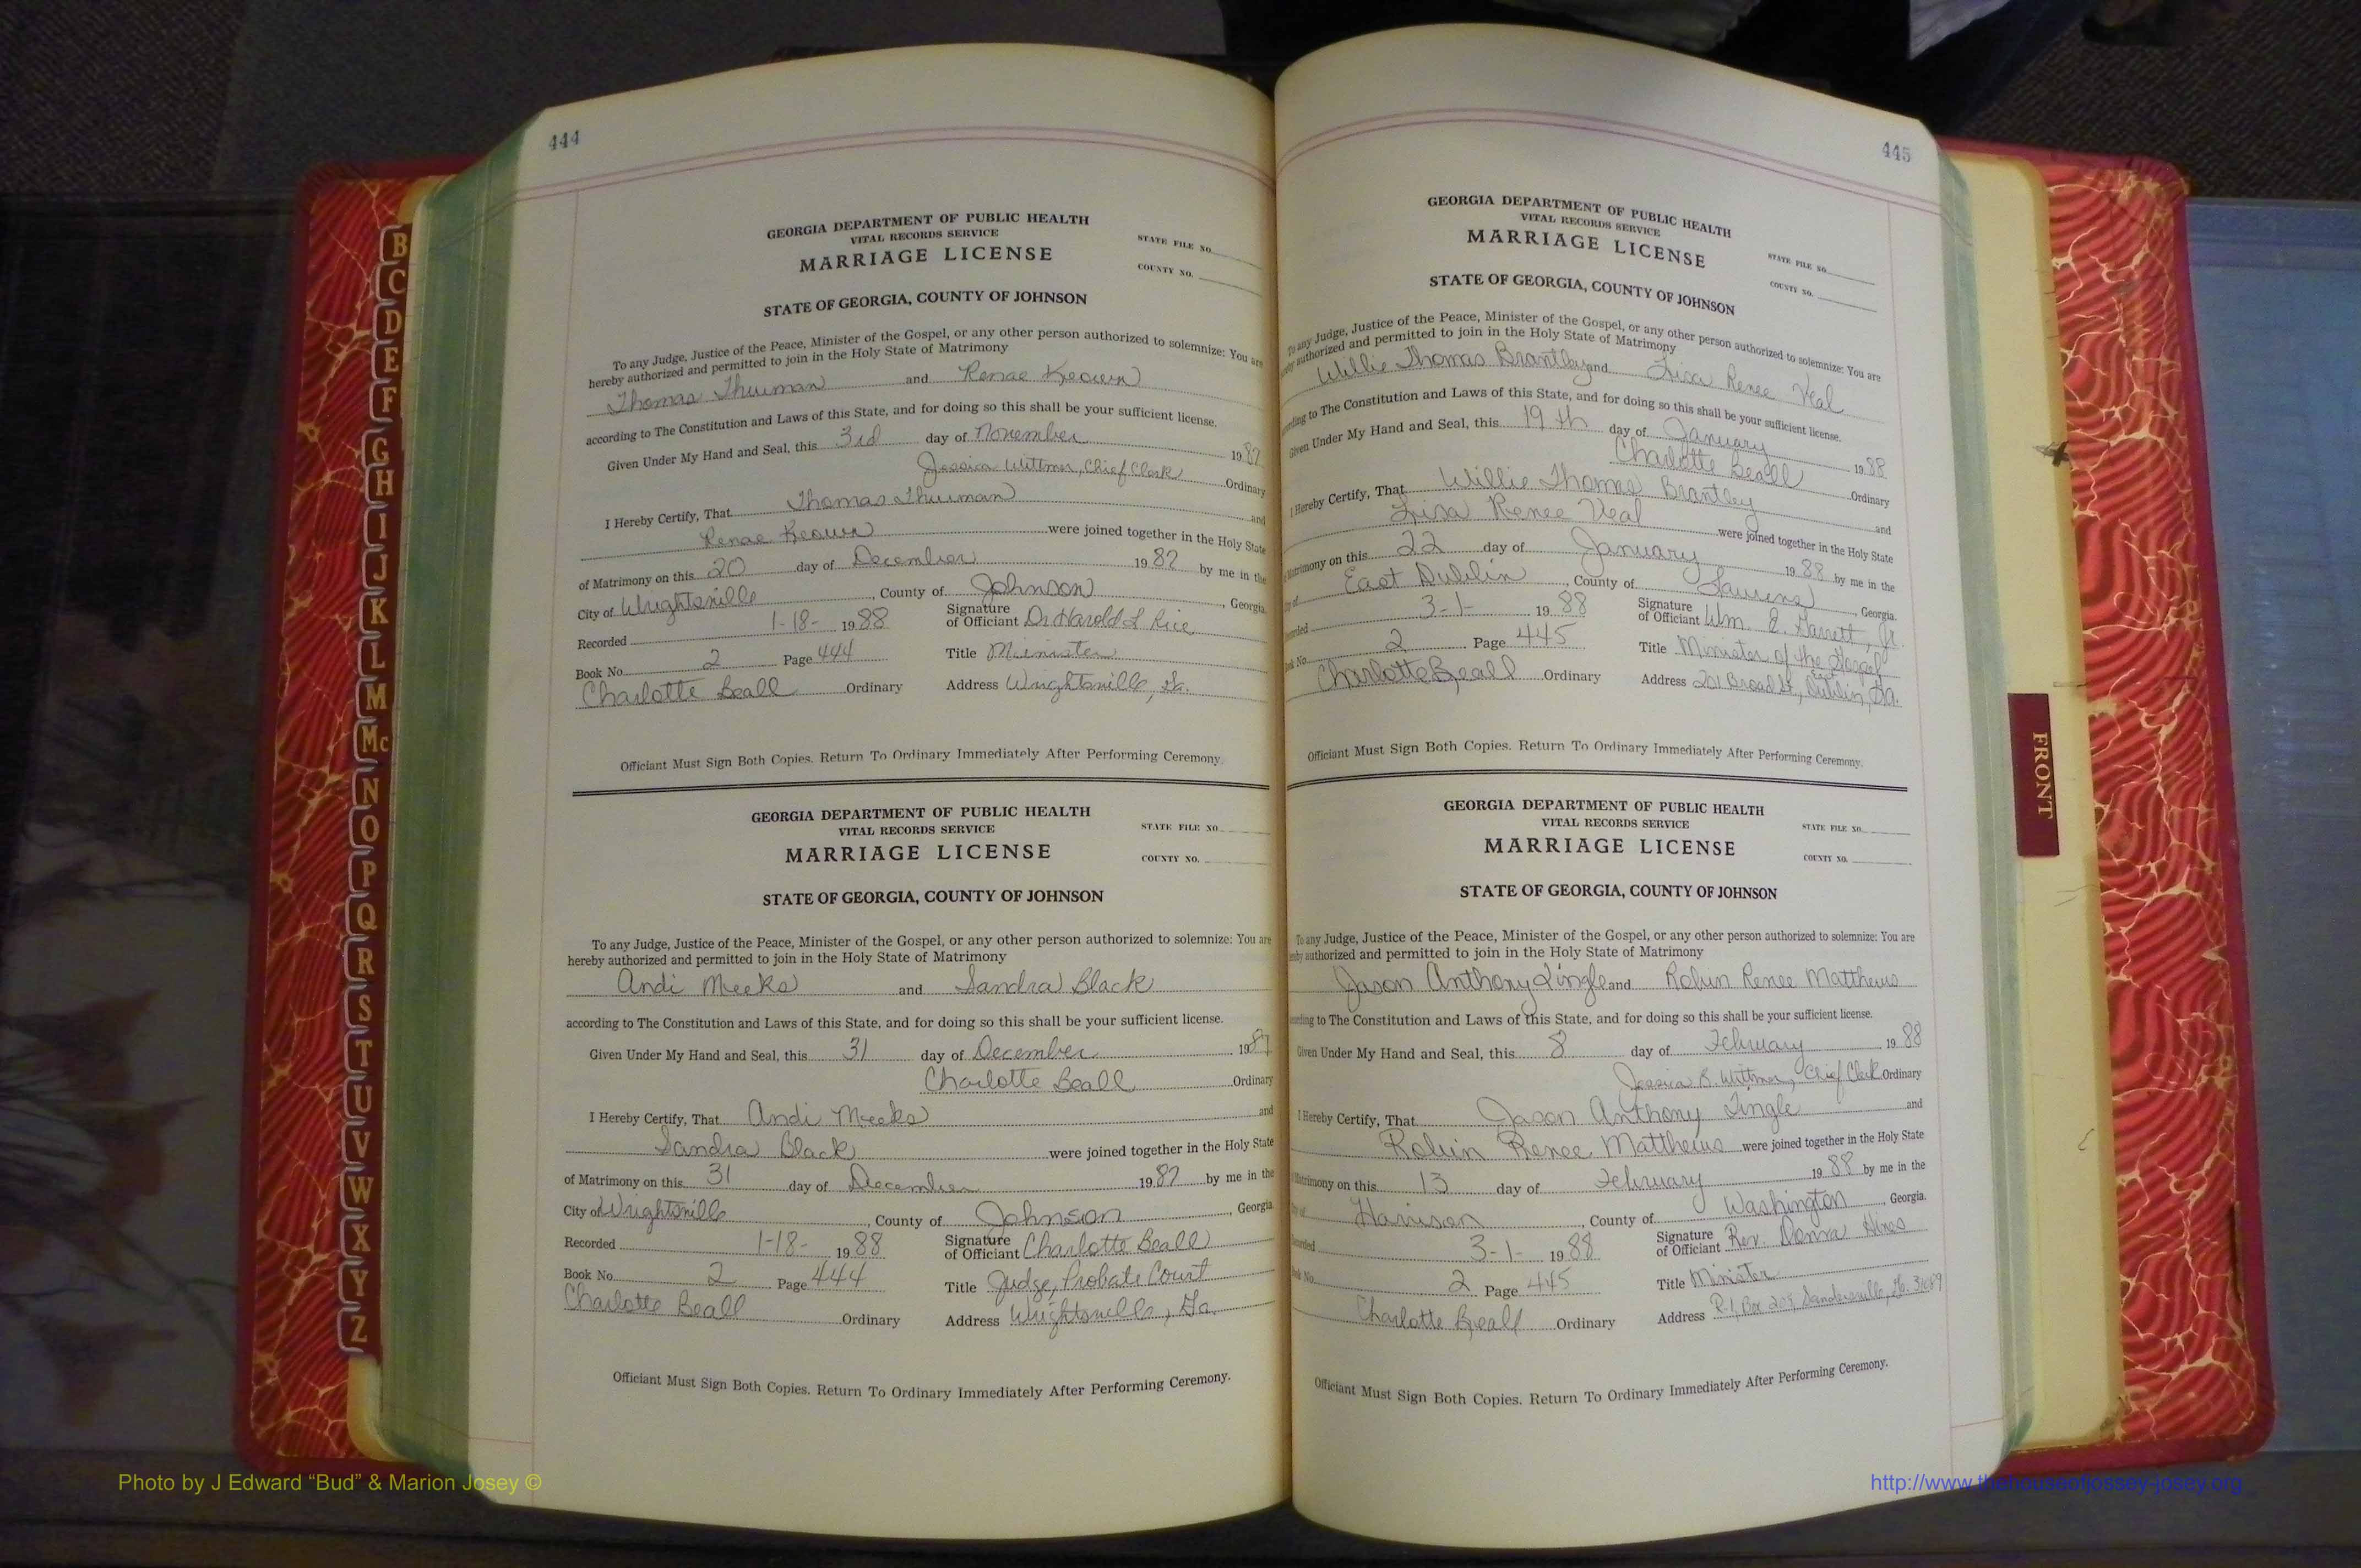 444
GEORGIA DEPARTMENT OF PUBLIC HEALTH
VITAL RECORDS SERVICE
MARRIAGE LICENSE
STATE FILE NO.
COUNTY NO.
STATE OF GEORGIA, COUNTY OF JOHNSON
To any Judge, Justice of the Peace, Minister of the Gospel, or any other person authorized to solemnize: You are
hereby authorized and permitted to join in the Holy State of Matrimony
Thomas Thurman and Renae Keown
according to The Constitution and Laws of this State, and for doing so this shall be your sufficient license.
Given Under My Hand and Seal, this 3rd day of November 1987
Jessica Wittmer, Chief Clerk Ordinary
I Hereby Certify, That Thomas Thurman and
Renae Keown were joined together in the Holy State
of Matrimony on this 20 day of December 1987 by me in the
City of Wrightsville, County of Johnson, Georgia
Recorded 1-18- 1988 Signature of Officiant Dr Harold L Rice
Book No. 2 Page 444 Title Minister
Charlotte Beall Ordinary Address Wrightsville, Ga.
Officiant Must Sign Both Copies. Return To Ordinary Immediately After Performing Ceremony.
GEORGIA DEPARTMENT OF PUBLIC HEALTH
VITAL RECORDS SERVICE
MARRIAGE LICENSE
STATE FILE NO.
COUNTY NO.
STATE OF GEORGIA, COUNTY OF JOHNSON
To any Judge, Justice of the Peace, Minister of the Gospel, or any other person authorized to solemnize: You are
hereby authorized and permitted to join in the Holy State of Matrimony
Andi Meeks and Sandra Black
according to The Constitution and Laws of this State, and for doing so this shall be your sufficient license.
Given Under My Hand and Seal, this 31 day of December 1987
Charlotte Beall Ordinary
I Hereby Certify, That Andi Meeks and
Sandra Black were joined together in the Holy State
of Matrimony on this 31 day of December 1987 by me in the
City of Wrightsville, County of Johnson, Georgia
Recorded 1-18- 1988 Signature of Officiant Charlotte Beall
Book No. 2 Page 444 Title Judge, Probate Court
Charlotte Beall Ordinary Address Wrightsville, Ga.
Officiant Must Sign Both Copies. Return To Ordinary Immediately After Performing Ceremony.
445
GEORGIA DEPARTMENT OF PUBLIC HEALTH
VITAL RECORDS SERVICE
MARRIAGE LICENSE
STATE FILE NO.
COUNTY NO.
STATE OF GEORGIA, COUNTY OF JOHNSON
To any Judge, Justice of the Peace, Minister of the Gospel, or any other person authorized to solemnize: You are
authorized and permitted to join in the Holy State of Matrimony
Willie Thomas Brantley and Lisa Renee Veal
to The Constitution and Laws of this State, and for doing so this shall be your sufficient license.
Given Under My Hand and Seal, this 19th day of January 1988
Charlotte Beall Ordinary
I Hereby Certify, That Willie Thomas Brantley and
Lisa Renee Veal were joined together in the Holy State
Matrimony on this 22 day of January 1988 by me in the
East Dublin, County of Laurens, Georgia.
3-1- 1988 Signature of Officiant Wm. E. Garrett, Jr.
2 Page 445 Title Minister of the Gospel
Charlotte Beall Ordinary Address 201 Broad St., Dublin, Ga.
Officiant Must Sign Both Copies. Return To Ordinary Immediately After Performing Ceremony.
GEORGIA DEPARTMENT OF PUBLIC HEALTH
VITAL RECORDS SERVICE
MARRIAGE LICENSE
STATE FILE NO.
COUNTY NO.
STATE OF GEORGIA, COUNTY OF JOHNSON
To any Judge, Justice of the Peace, Minister of the Gospel, or any other person authorized to solemnize: You are
authorized and permitted to join in the Holy State of Matrimony
Jason Anthony Lingle and Robin Renee Matthews
to The Constitution and Laws of this State, and for doing so this shall be your sufficient license.
Given Under My Hand and Seal, this 8 day of February 1988
Jessica B. Wittmer, Chief Clerk Ordinary
I Hereby Certify, That Jason Anthony Lingle and
Robin Renee Matthews were joined together in the Holy State
Matrimony on this 13 day of February 1988 by me in the
Harrison, County of Washington, Georgia.
3-1- 1988 Signature of Officiant Rev. Hines
2 Page 445 Title Minister
Charlotte Beall Ordinary Address Rt. 1, Box Sandersville, Ga.
Officiant Must Sign Both Copies. Return To Ordinary Immediately After Performing Ceremony.
B
C
D
E
F
G
H
I
J
K
L
M
Mc
N
O
P
Q
R
S
T
U
V
W
X
Y
Z
FRONT
Photo by J Edward “Bud” & Marion Josey ©
http://www.thehouseofjossey-josey.org